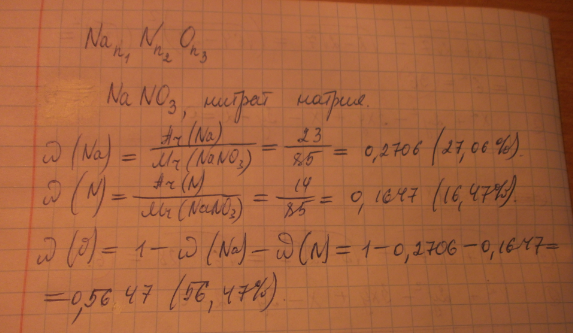 Naₙ₁ Nₙ₂ Oₙ₃
NaNO₃, нитрат натрия.
ω(Na) = Ar(Na) / Mr(NaNO₃) = 23 / 85 = 0,2706 (27,06%).
ω(N) = Ar(N) / Mr(NaNO₃) = 14 / 85 = 0,1647 (16,47%).
ω(O) = 1 – ω(Na) – ω(N) = 1 – 0,2706 – 0,1647 =
= 0,5647 (56,47%).